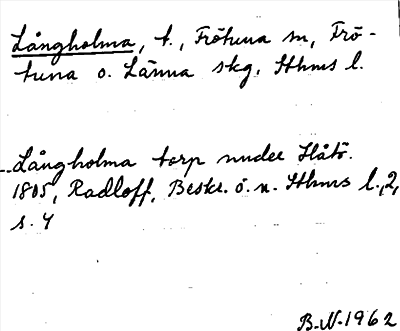 Långholma, t., Frötuna sn, Frö-
tuna o. Länna skg, Sthms l.
Långholma torp under Håtö.
1805, Radloff, Beskr. ö. n. Sthms l., 2,
s. 4
B.N. 1962